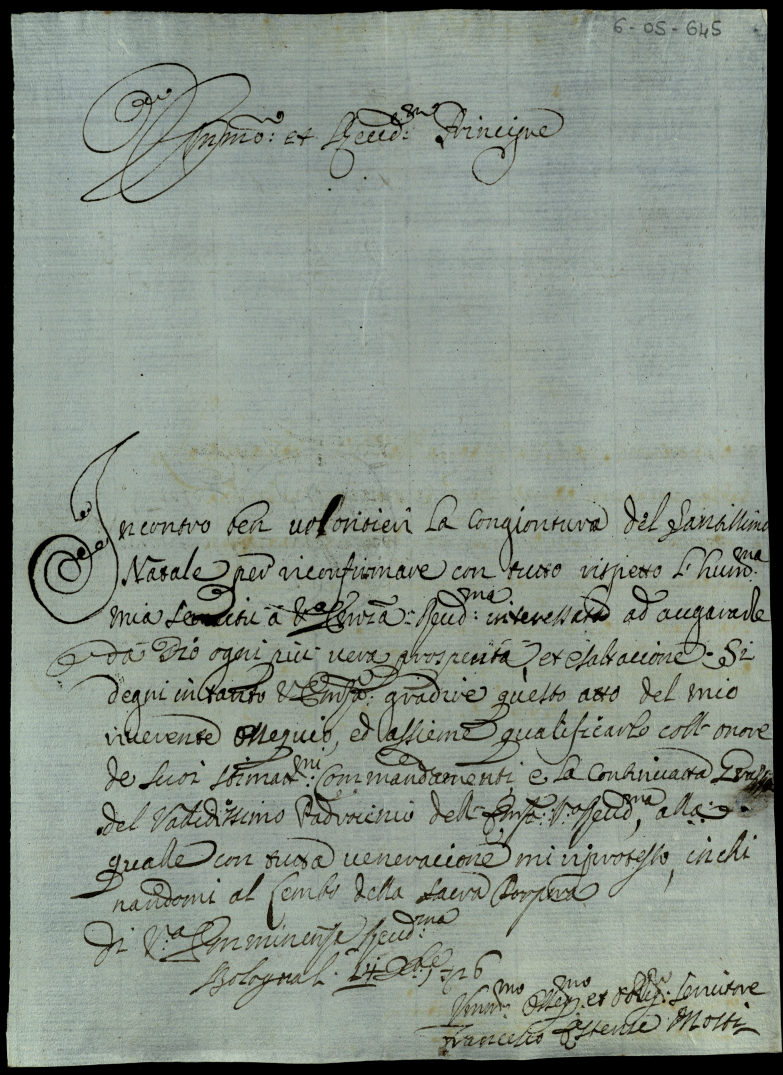 6-05-645
Em̃mo: et Reued:mo Principe
Incontro ben volontieri La Congiontura del Santissimo
Natale per riconfirmare con tutto rispetto L'hum:ma
mia Seruitù à V.a Emza: Reud:ma interessata ad augurarle
da Dio ogni più uera prosperità, et esaltacione. Si
degni intanto V. Emza: gradire questo atto del mio
riuerente Ossequio, ed assieme qualificarlo coll'onore
de suoi stimat:mi Commandamenti, e la Continuata
del Validissimo Padrocinio dell' Emza: V.a Reud:ma, alla
qualle con tutta ueneracione mi riprotesto, inchi
nandomi al Lembo della Sacra Porpora
di V.a Emminenza Reud:ma
Bologna L. 14 Xbre 1726
Hum:mo Osseq:mo et Obblig: Seruitore
Francesco Estense Mosti